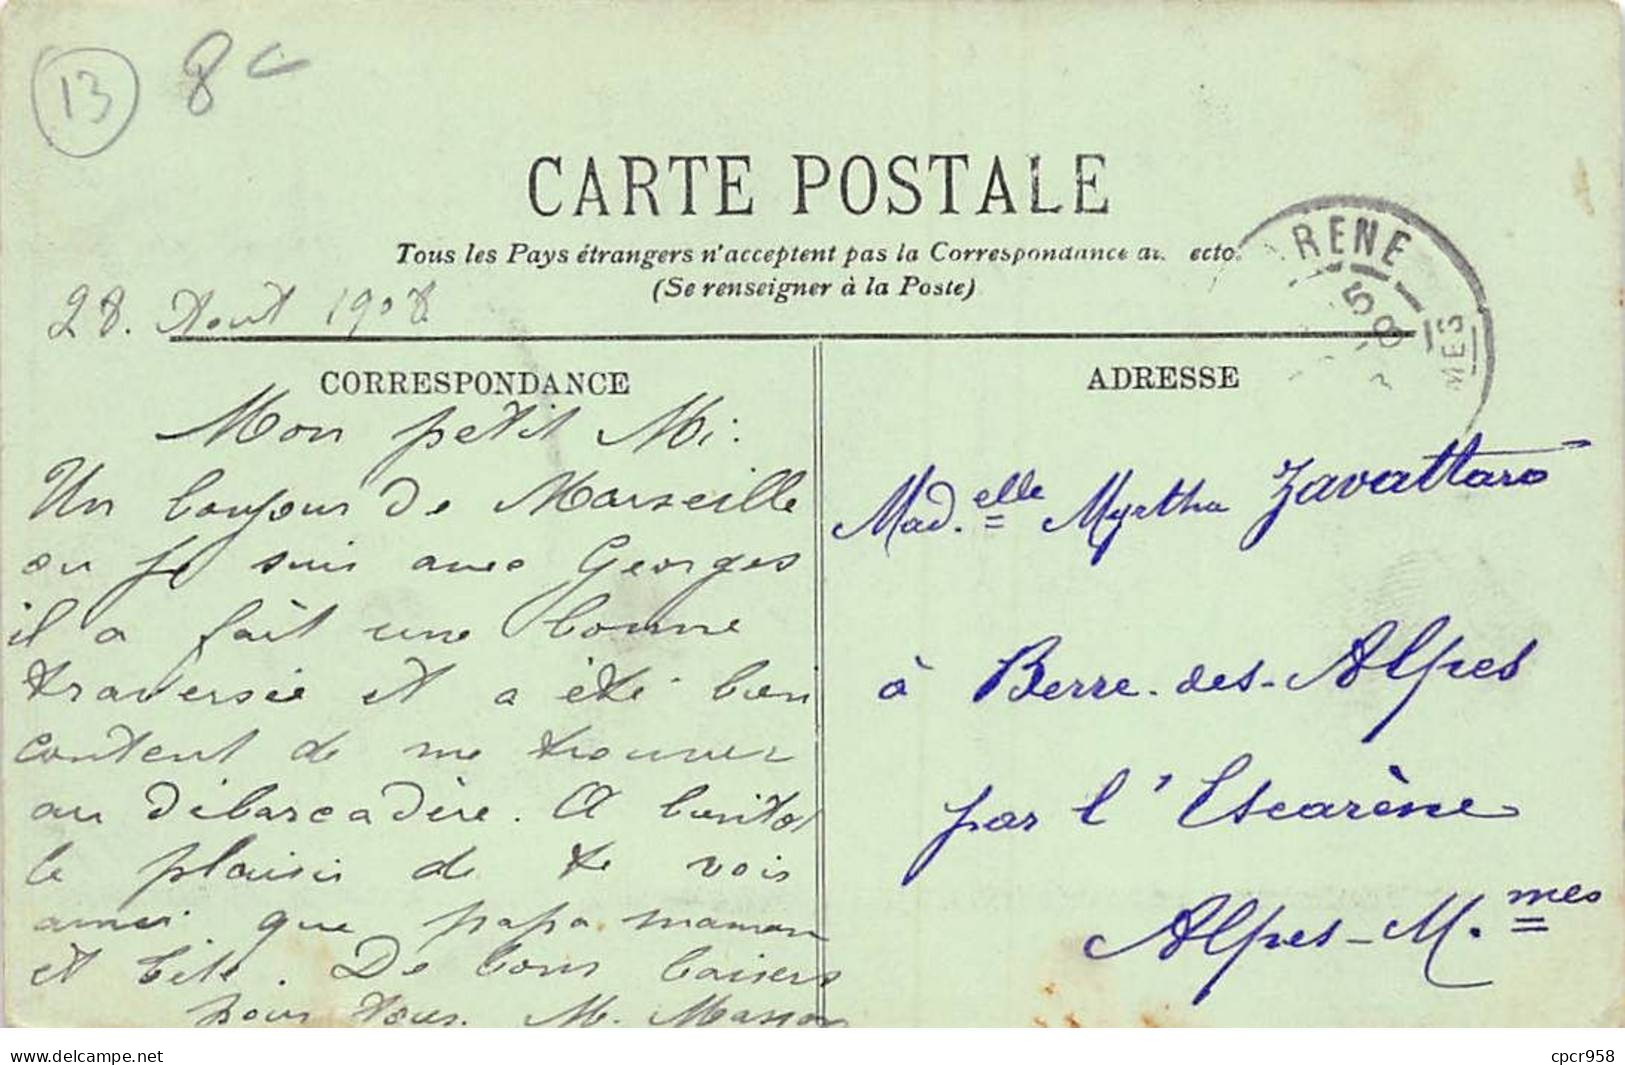 13 8c
CARTE POSTALE
Tous les Pays étrangers n'acceptent pas la Correspondance au recto
(Se renseigner à la Poste)
RENE
5
8
MES
28. Aout 1908
CORRESPONDANCE
Mon petit Mi:
Un bonjour de Marseille
ou je suis avec Georges
il a fait une bonne
traversée et a été bien
content de me trouver
au débarcadère. A bientot
le plaisir de te voir
ainsi que papa maman
et De bons baisers
pour tous. M. Masson
ADRESSE
Mad.elle Myrtha Zavattaro
à Berre-des-Alpes
par l'Escarène
Alpes-M.mes
www.delcampe.net
cpcr958